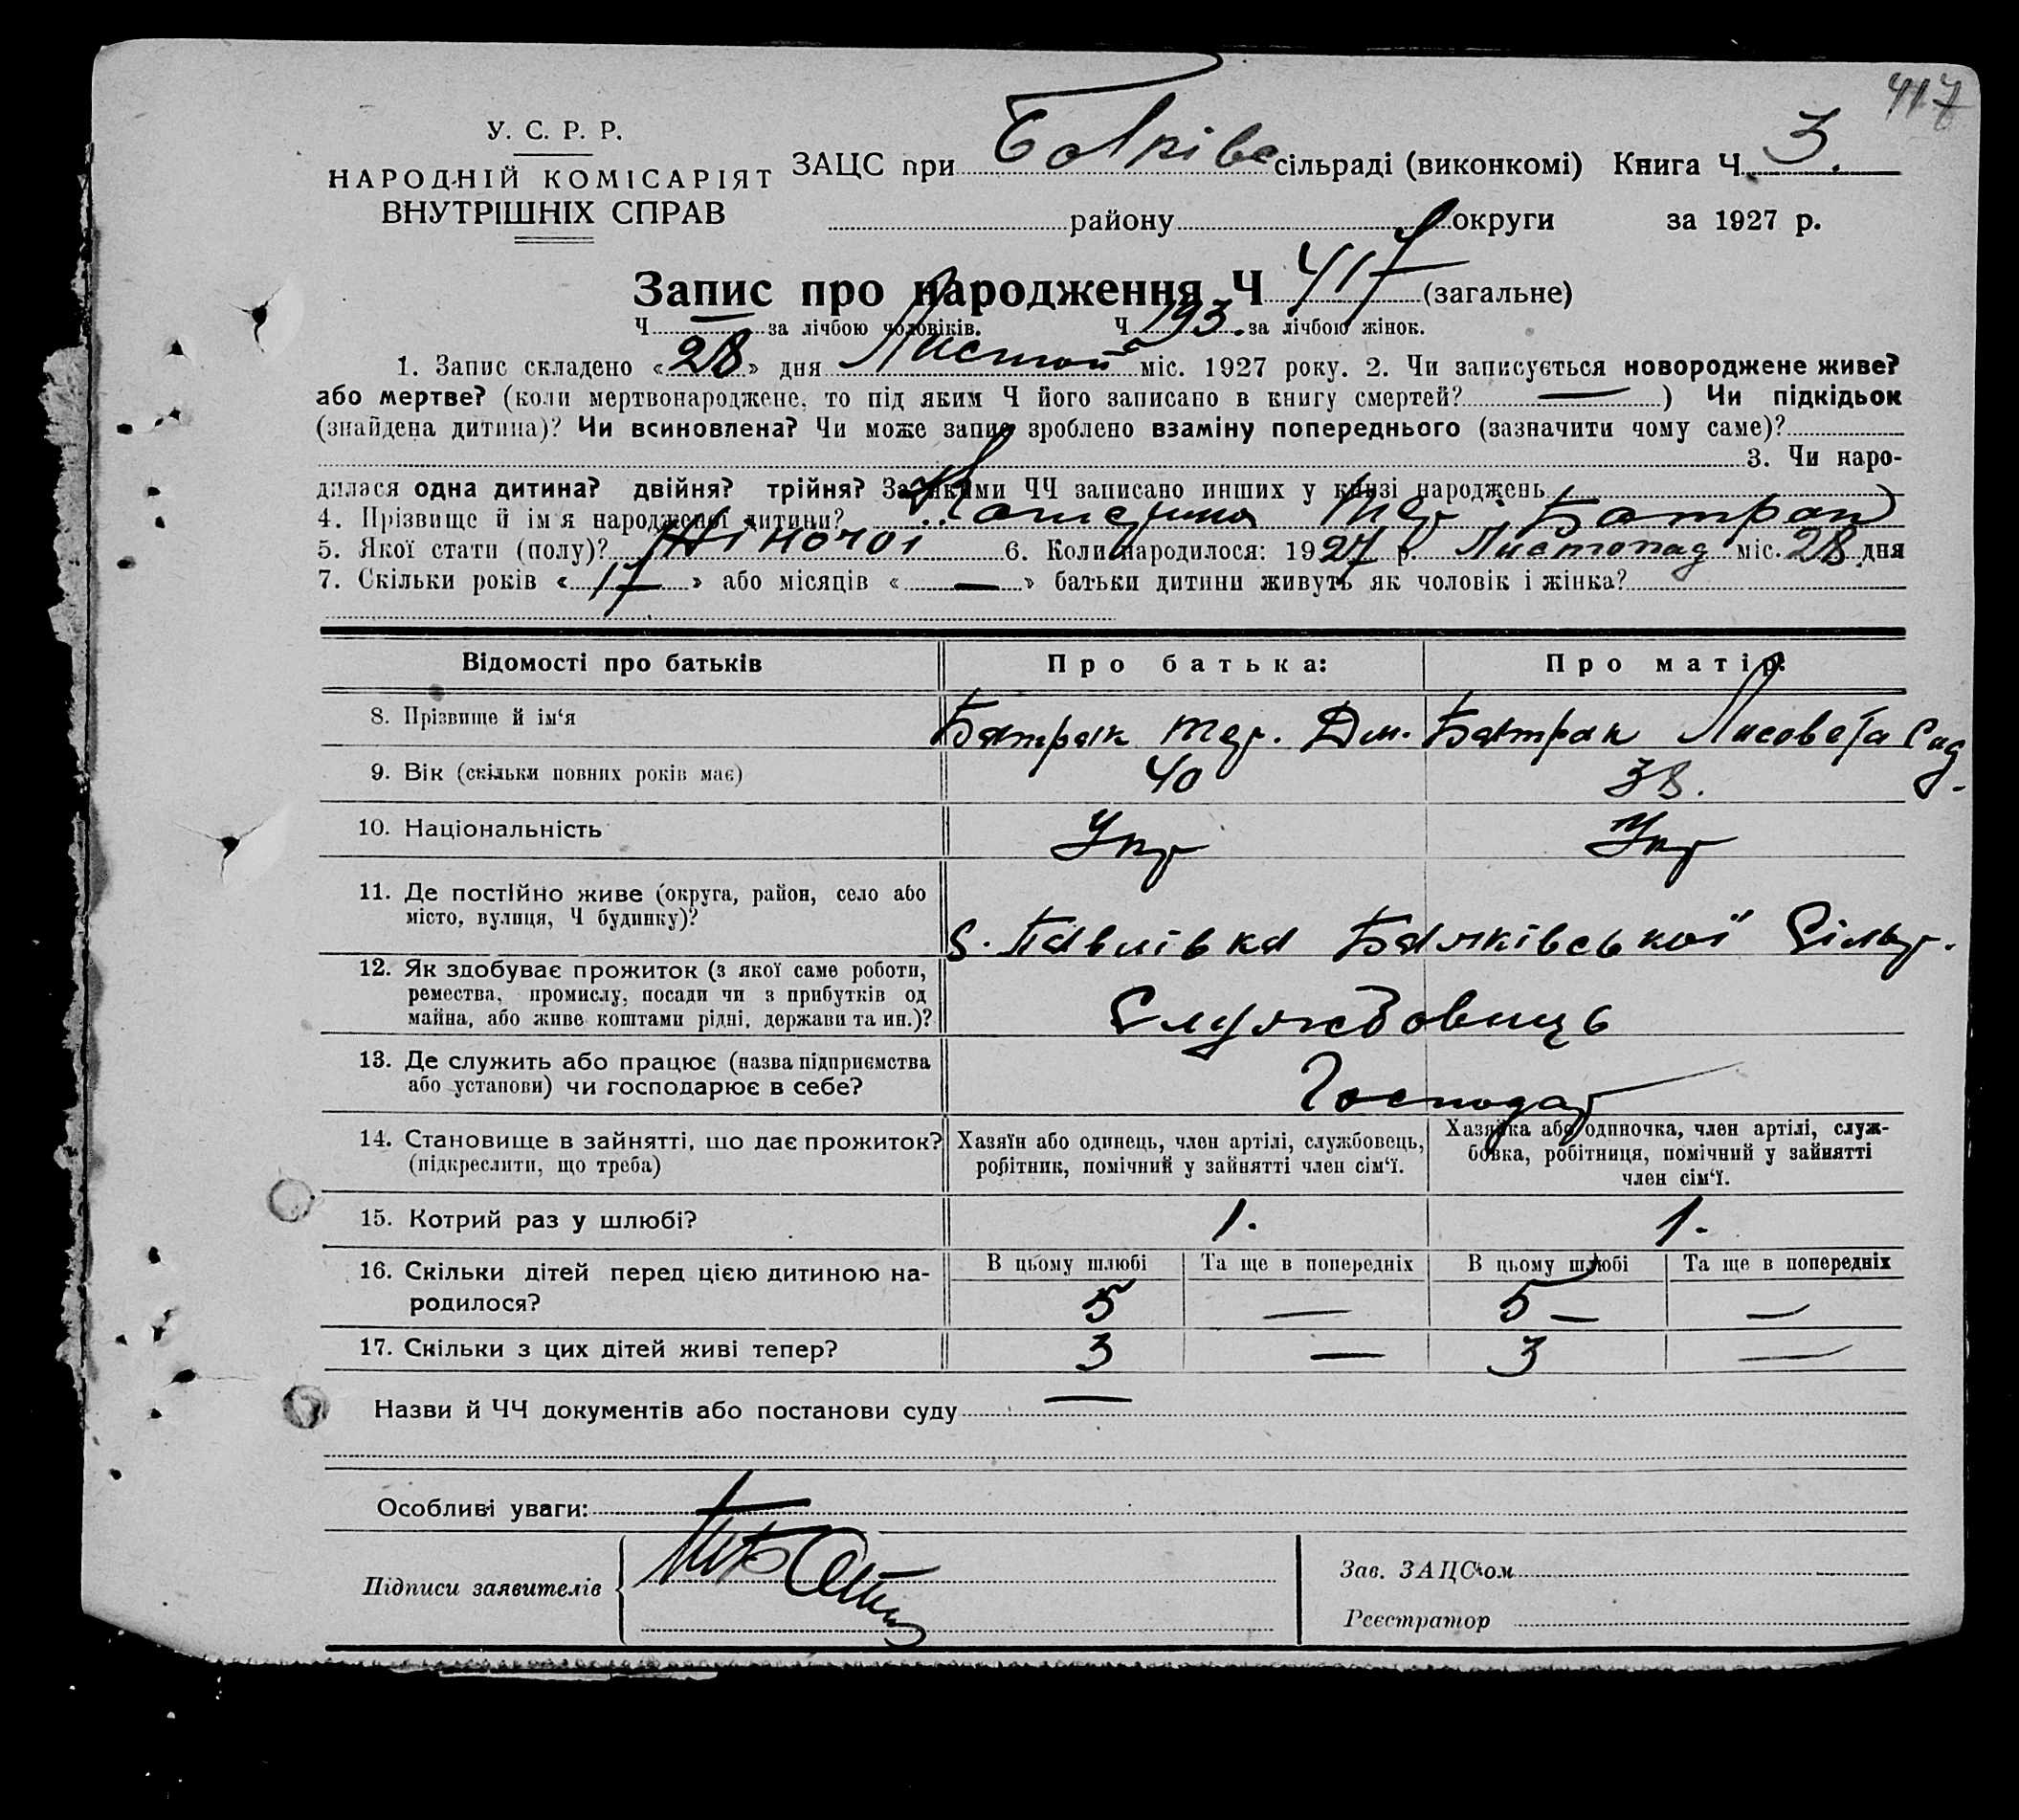 417
У. С. Р. Р.
НАРОДНІЙ КОМІСАРІЯТ
ВНУТРІШНІХ СПРАВ
ЗАЦС при сільраді (виконкомі) Книга Ч 3.
району округи за 1927 р.
Запис про народження Ч 417 (загальне)
Ч. — за лічбою чоловіків. Ч 193. за лічбою жінок.
1. Запис складено «28» дня Листоп міс. 1927 року. 2. Чи записується новороджене живе?
або мертве? (коли мертвонароджене, то під яким Ч його записано в книгу смертей? — ) Чи підкідьок
(знайдена дитина)? Чи всиновлена? Чи може запис зроблено взаміну попереднього (зазначити чому саме)?
3. Чи наро-
дилася одна дитина? двійня? трійня? За якими ЧЧ записано инших у книзі народжень
4. Прізвище й ім'я народженої дитини? Катерина Тед. Батрак
5. Якої стати (полу)? Жіночої 6. Коли народилося: 1927 р. Листопад міс. 28 дня
7. Скільки років «17» або місяців «—» батьки дитини живуть як чоловік і жінка?
Відомості про батьків Про батька: Про матір:
8. Прізвище й ім'я Батрак Тед. Дм. Батрак Лисовета Сид.
9. Вік (скільки повних років має) 40 38.
10. Національність Укр Укр
11. Де постійно живе (округа, район, село або
місто, вулиця, Ч будинку)? с. Павлівка Сільр.
12. Як здобуває прожиток (з якої саме роботи,
ремества, промислу, посади чи з прибутків од
майна, або живе коштами рідні, держави та ин.)? Службовиць
13. Де служить або працює (назва підприємства
або установи) чи господарює в себе? Господар
14. Становище в зайнятті, що дає прожиток?
(підкреслити, що треба)
Хазяїн або одинець, член артілі, службовець,
робітник, помічний у зайнятті член сім'ї.
Хазяйка або одиночка, член артілі, служ-
бовка, робітниця, помічний у зайнятті
член сім'ї.
15. Котрий раз у шлюбі? 1. 1.
16. Скільки дітей перед цією дитиною на-
родилося?
В цьому шлюбі Та ще в попередніх В цьому шлюбі Та ще в попередніх
5 — 5 — —
17. Скільки з цих дітей живі тепер? 3 — 3 —
Назви й ЧЧ документів або постанови суду —
Особливі уваги:
Підписи заявителів
Зав. ЗАЦС'ом
Реєстратор